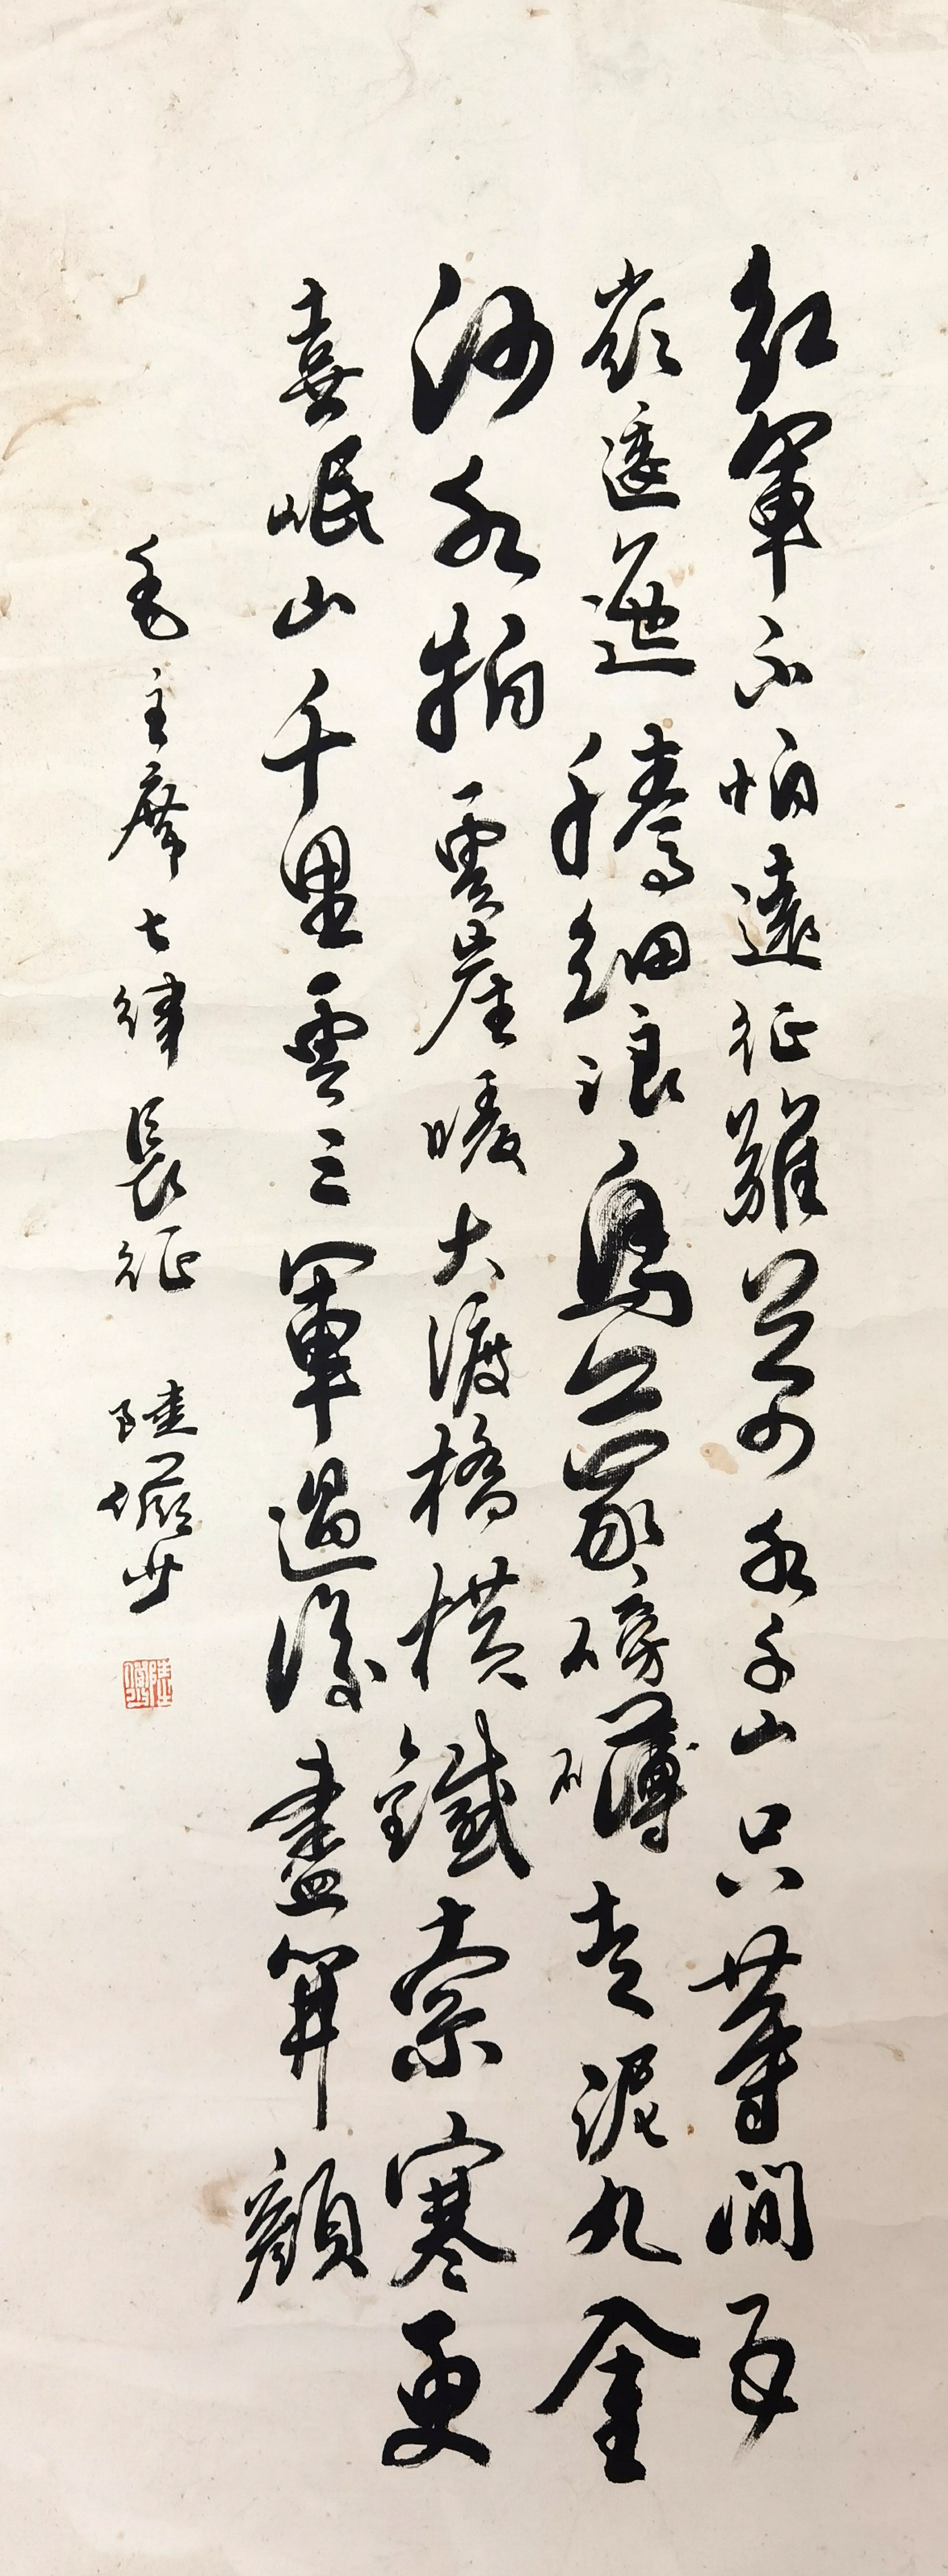 紅軍不怕遠征難萬水千山只等閒五
嶺逶迤騰細浪烏蒙磅礴走泥丸金
沙水拍雲崖暖大渡橋橫鐵索寒更
喜岷山千里雪三軍過後盡開顏
毛主席七律長征 陸儼少
陸儼